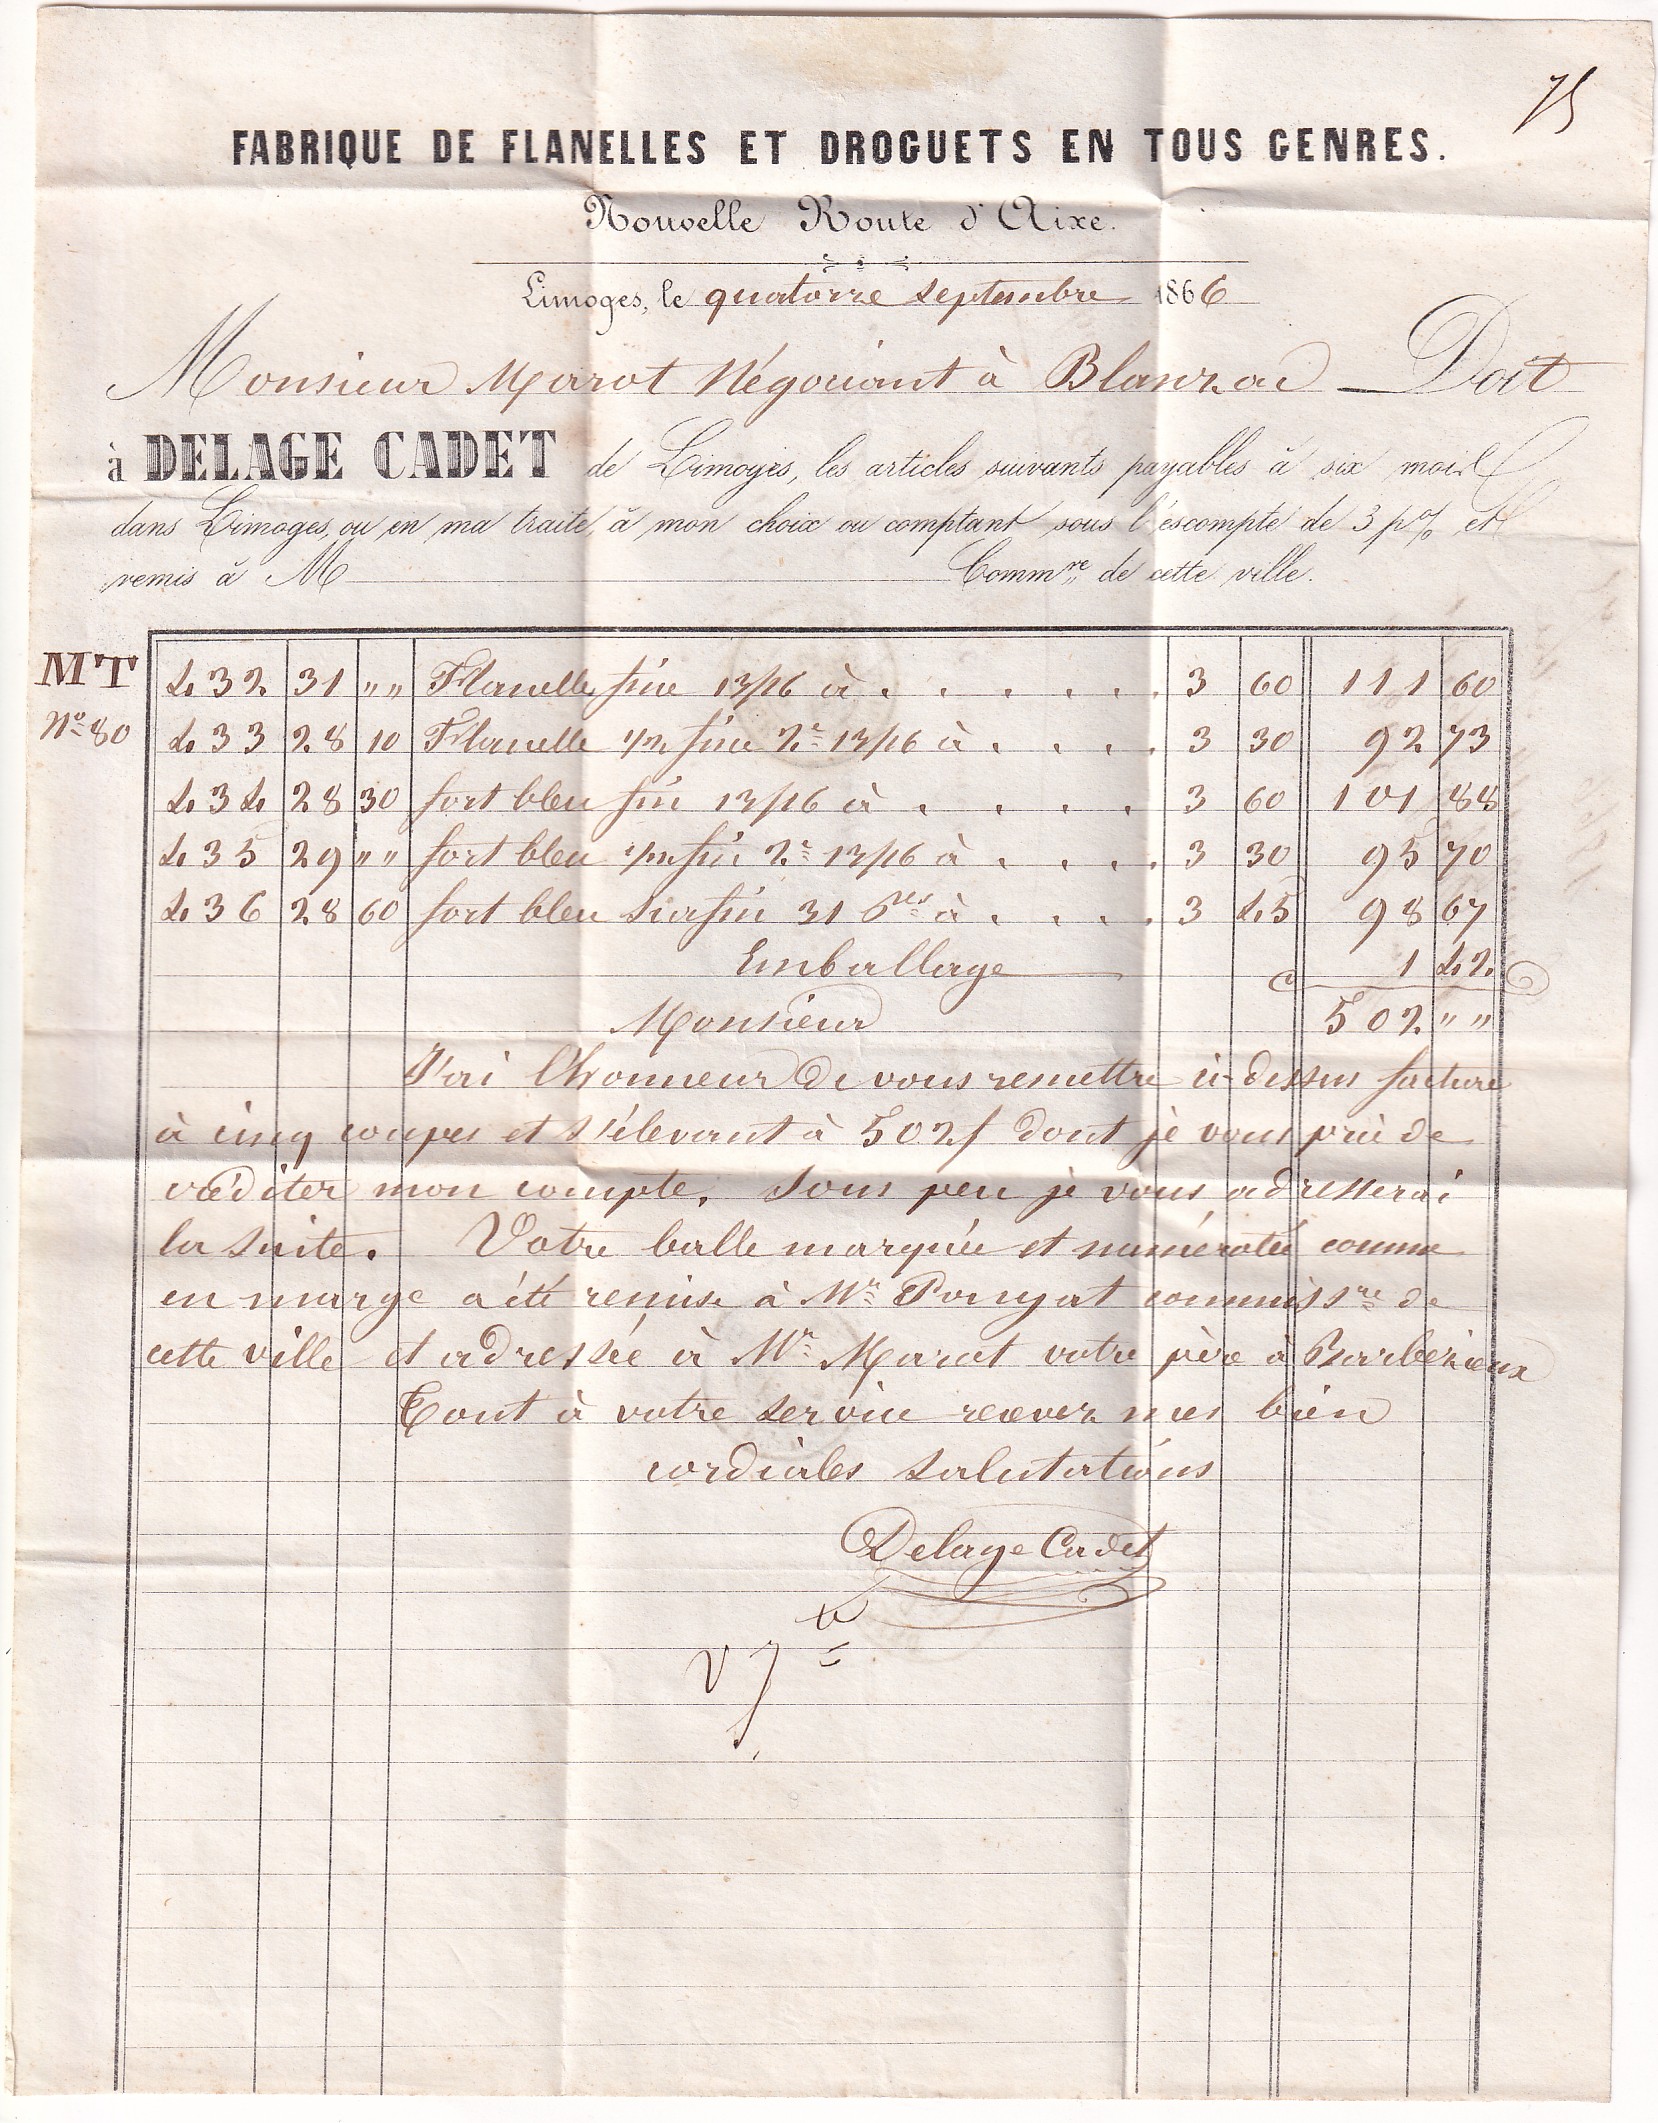 75
FABRIQUE DE FLANELLES ET DROGUETS EN TOUS GENRES.
Nouvelle Route d'Aixe.
Limoges, le quatorze septembre 1866
Monsieur Marot Négociant à Blanzac Doit
à DELAGE CADET de Limoges, les articles suivants payables à six mois
dans Limoges, ou en ma traite, à mon choix ou comptant sous l'escompte de 3 p% et
remis à M Commre de cette ville.
MT 432 31 "" Flanelle fine 13/16 à . . . . . . 3 60 111 60
No 80 433 28 10 Flanelle 1/2 fine 2e 13/16 à . . . . 3 30 92 73
434 28 30 fort bleu fin 13/16 à . . . . 3 60 101 88
435 29 "" fort bleu 1/2 fin 2e 13/16 à . . . . 3 30 95 70
436 28 60 fort bleu surfin 31 à . . . . 3 45 98 67
Emballage 1 42
Monsieur 502 ""
J'ai l'honneur de vous remettre ci-dessus facture
à cinq coupes et s'élevant à 502f dont je vous prie de
créditer mon compte. Sous peu je vous adresserai
la suite. Votre balle marquée et numérotée comme
en marge a été remise à Mr commissre de
cette ville et adressée à Mr Marot votre père à Barbezieux
Tout à votre service recevez mes bien
cordiales salutations
Delage Cadet